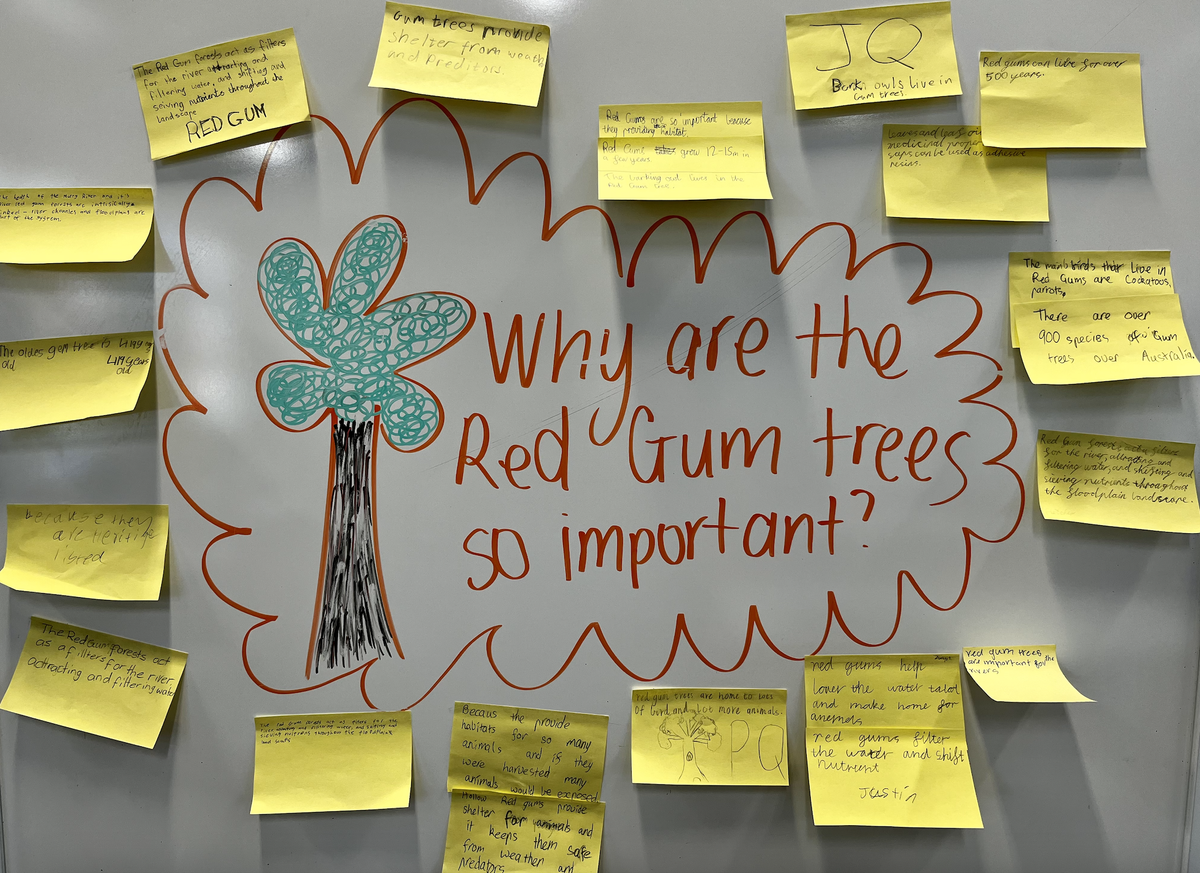 Why are the
Red Gum trees
so important?
The Red Gum forests act as filters
for the river attracting and
filtering water, and shifting and
seiving nutrients throughout the
landscape
RED GUM
Gum trees provide
shelter from weath
and Preditors.
Red Gums are so important because
they providing habitat.
Red Gums grow 12-15m in
a few years.
The barking owl lives in the
red Gum tree.
JQ
Barkin owls live in
Gum trees
Red gums can live for over
500 years.
leaves and
medicinal proper
saps can be used as adhesive
resins.
The main birds that Live in
Red Gums are Cockatoos,
parrots,
There are over
900 species of Gum
trees over Australia.
Red Gum forests
for the river, attracting and
filtering water, and shifting and
seiving nutrients throughout
the floodplain landscape.
red gum trees
are important for the
rivers
red gums help
lover the water tabol
and make home for
anemals
red gums filter
the water and shift
nutrient
Justin
red gum trees are home to lots
of Gord and lot more animals.
PQ
Becaus the provide
habitats for so many
animals and if they
were harvested many
animals would be exposed
Hollow Red gums provide
shelter for animals and
it keeps them safe
from weather and
predators
The red gum forests act as filters for the
river attracting and filtering water, and shifting and
seiving nutriens throughout the floodplains
The RedGum forests act
as a filters for the river
actracting and filtering water
because they
are heritige
listed
The oldes gum tree is 419 years
old
419 years
old
The health of the murry River and it's
red gum forests are intrinsically
linked - river channels and floodplains are
part of the system.